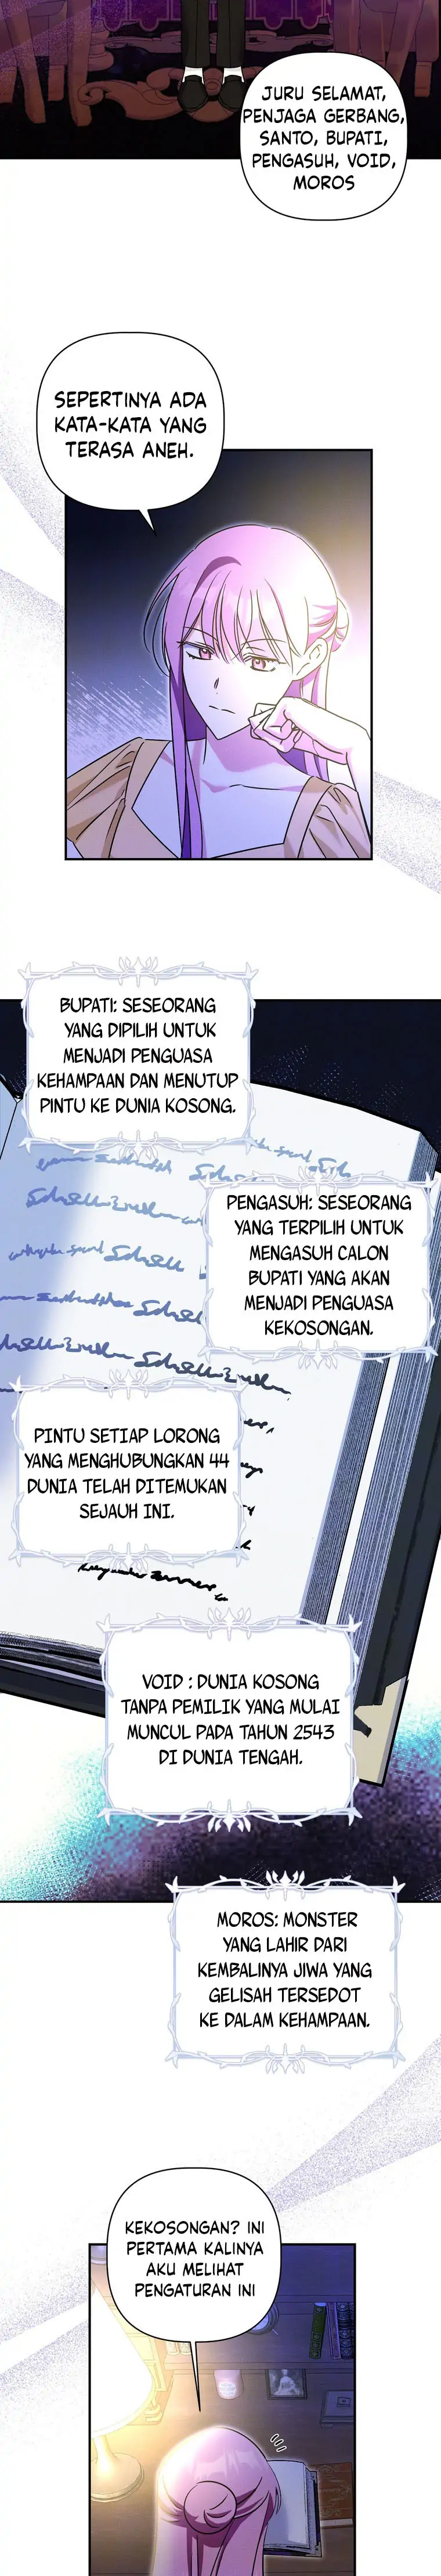 JURU SELAMAT,
PENJAGA GERBANG,
SANTO, BUPATI,
PENGASUH, VOID,
MOROS
SEPERTINYA ADA
KATA-KATA YANG
TERASA ANEH.
BUPATI: SESEORANG
YANG DIPILIH UNTUK
MENJADI PENGUASA
KEHAMPAAN DAN MENUTUP
PINTU KE DUNIA KOSONG.
PENGASUH: SESEORANG
YANG TERPILIH UNTUK
MENGASUH CALON
BUPATI YANG AKAN
MENJADI PENGUASA
KEKOSONGAN.
PINTU SETIAP LORONG
YANG MENGHUBUNGKAN 44
DUNIA TELAH DITEMUKAN
SEJAUH INI.
VOID : DUNIA KOSONG
TANPA PEMILIK YANG MULAI
MUNCUL PADA TAHUN 2543
DI DUNIA TENGAH.
MOROS: MONSTER
YANG LAHIR DARI
KEMBALINYA JIWA YANG
GELISAH TERSEDOT
KE DALAM KEHAMPAAN.
KEKOSONGAN? INI
PERTAMA KALINYA
AKU MELIHAT
PENGATURAN INI